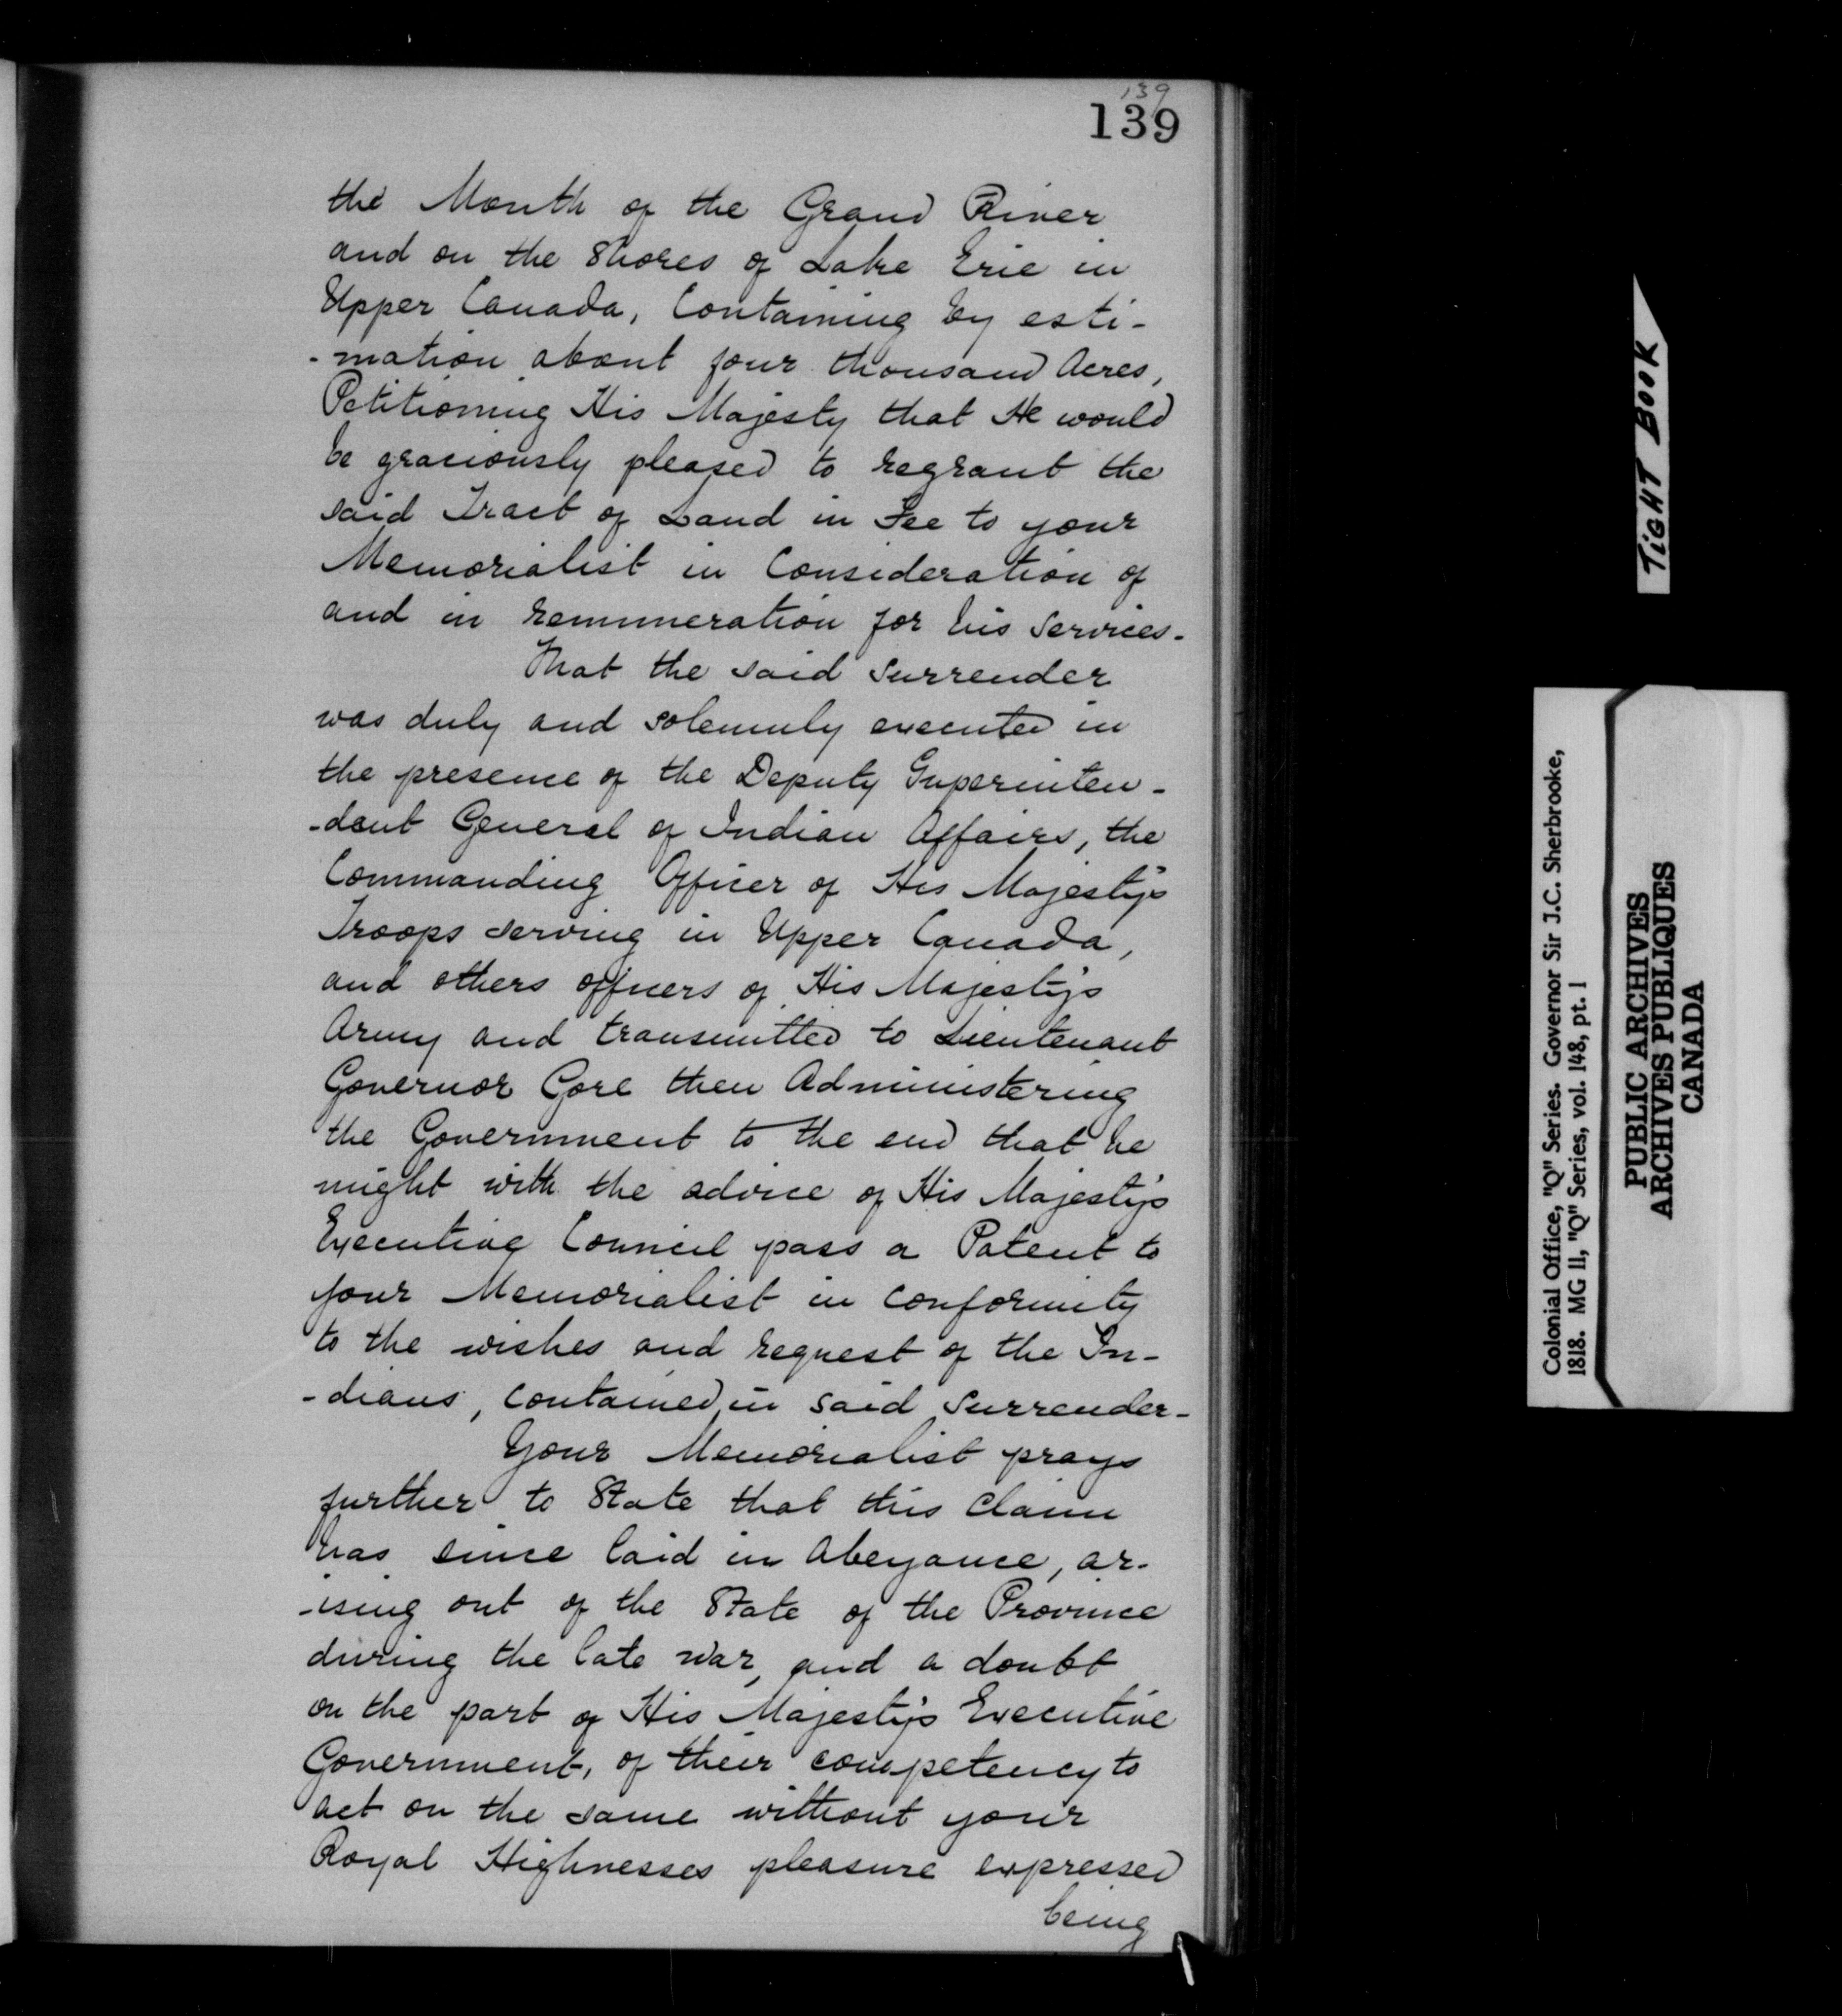 139
139
the Mouth of the Grand River
and on the Shores of Lake Erie in
Upper Canada, Containing by esti-
-mation about four thousand Acres,
Petitioning His Majesty that He would
be graciously pleased to regrant the
said Tract of Land in Fee to your
Memorialist in Consideration of
and in remuneration for his Services.
That the said Surrender
was duly and solemnly executed in
the presence of the Deputy Superinten-
-dant General of Indian Affairs, the
Commanding Officer of His Majesty's
Troops serving in Upper Canada,
and others officers of His Majesty's
Army and transmitted to Lieutenant
Governor Gore then Administering
the Government to the end that he
might with the advice of His Majesty's
Executive Council pass a Patent to
your Memorialist in conformity
to the wishes and request of the In-
-dians, contained in said Surrender-
Your Memorialist prays
further to State that this Claim
has since laid in Abeyance, ar-
-ising out of the State of the Province
during the late War, and a doubt
on the part of His Majesty's Executive
Government, of their competency to
act on the same without your
Royal Highnesses pleasure expressed
being
TIGHT BOOK
Colonial Office, "Q" Series. Governor Sir J.C. Sherbrooke,
1818. MG 11, "Q" Series, vol. 148, pt. 1
PUBLIC ARCHIVES
ARCHIVES PUBLIQUES
CANADA